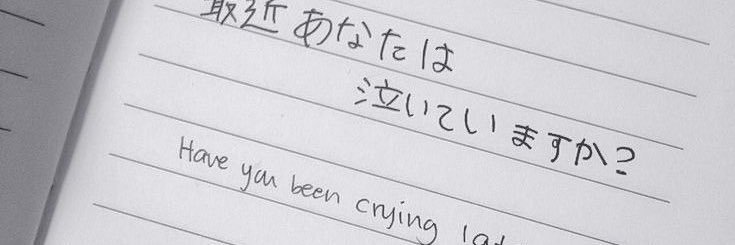 最近あなたは
泣いていますか?
Have you been crying